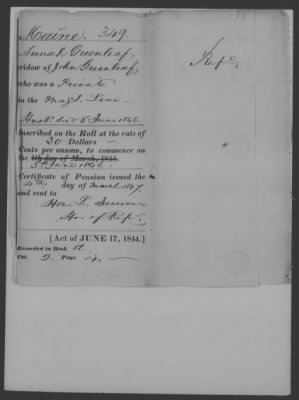 Maine. 349.
Annah Greenleaf
widow of John Greenleaf
who was a Private
in the Mass. Line
5 June 1846
Inscribed on the Roll at the rate of
30 Dollars —
Cents per annum, to commence on
the 4th day of March, 1844.
5th June 1846.
Certificate of Pension issued the
4th day of March 1847
and sent to
Hon. L.
Ho. of Rep.
[Act of JUNE 17, 1844.]
Recorded in Book A.
Vol. 2 Page
Reps.